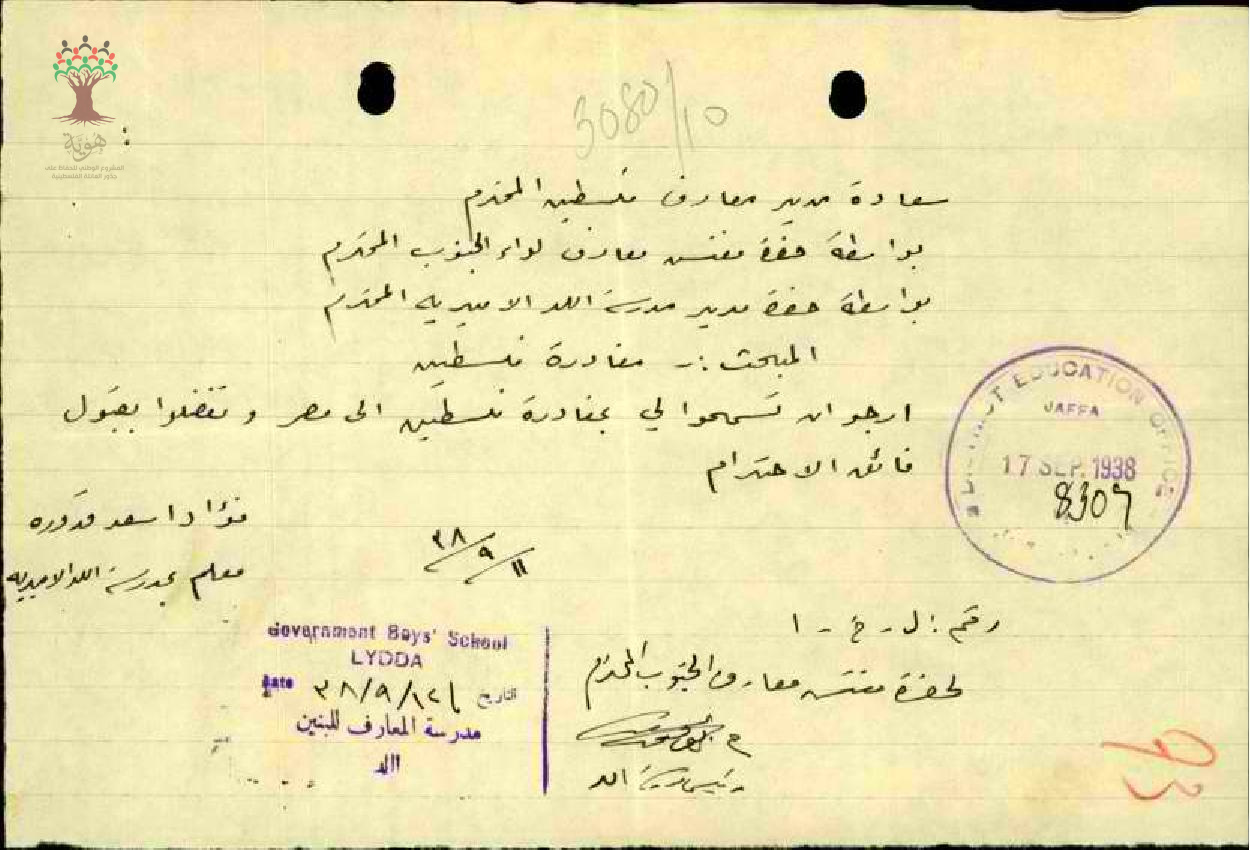 هوية
المشروع الوطني للحفاظ على
جذور العائلة الفلسطينية
3080/10
سعادة مدير معارف فلسطين المحترم
بواسطة حضرة مفتش معارف لواء الجنوب المحترم
بواسطة حضرة مدير مدرسة اللد الاميرية المحترم
المبحث :ـ مغادرة فلسطين
ارجو ان تسمحوا لي بمغادرة فلسطين الى مصر و تفضلوا بقبول
فائق الاحترام
فؤاد اسعد قدوره
معلم بمدرسة اللد الاميرية
١١/٩/٣٨
DISTRICT EDUCATION OFFICE
JAFFA
17 SEP. 1938
8307
رقم : ل - خ - ١
لحضرة مفتش معارف الجنوب المحترم
اللد
Government Boys' School
LYDDA
Date ٣٨/٩/١٢ التاريخ
مدرسة المعارف للبنين
اللد
93